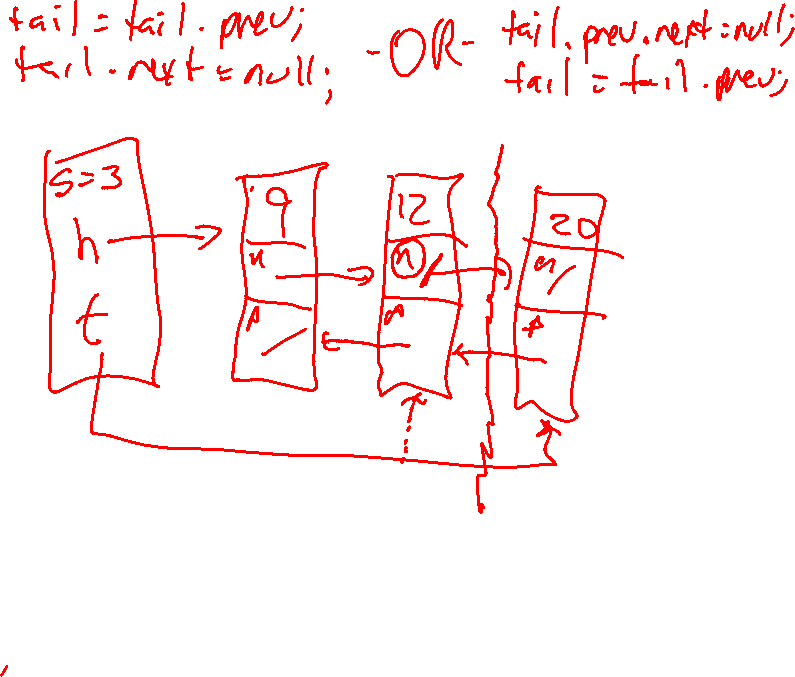 tail = tail.prev;
tail.next = null;
-OR-
tail.prev.next = null;
tail = tail.prev;
s=3
h
t
9
n
p
12
n
p
20
n
p